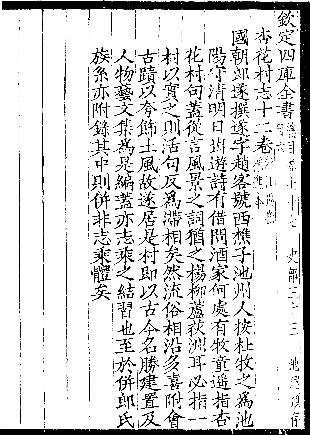 欽定四庫全書
杏花村志十二卷
國朝郎遂撰遂字趙客號西樵子池州人按杜牧之為池
陽守清明日出遊詩有借問酒家何處有牧童遥指杏
花村句蓋從言風景之詞猶之楊柳蘆荻洲耳必指一
村以實之則活句反為滯相矣然流俗相沿多喜附會
古蹟以夸飾土風故遂居是村即以古今名勝建置及
人物藝文集為是編蓋亦志乘之結習也至於併郎氏
族系亦附錄其中則併非志乘體矣